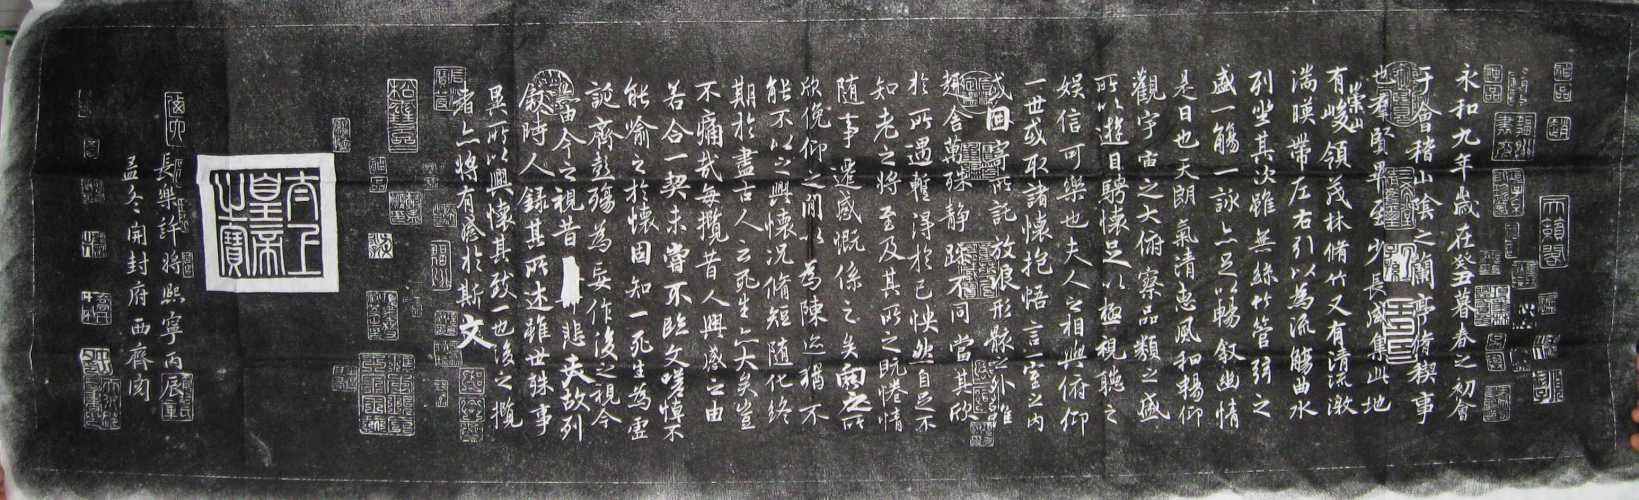 永和九年歲在癸丑暮春之初會
于會稽山陰之蘭亭脩稧事
也羣賢畢至少長咸集此地
有崇山峻領茂林脩竹又有清流激
湍暎帶左右引以為流觴曲水
列坐其次雖無絲竹管弦之
盛一觴一詠亦足以暢敘幽情
是日也天朗氣清惠風和暢仰
觀宇宙之大俯察品類之盛
所以遊目騁懷足以極視聽之
娛信可樂也夫人之相與俯仰
一世或取諸懷抱悟言一室之內
或因寄所託放浪形骸之外雖
趣舍萬殊靜躁不同當其欣
於所遇暫得於己怏然自足不
知老之將至及其所之既惓情
隨事遷感慨係之矣向之所
欣俛仰之間以為陳迹猶不
能不以之興懷況脩短隨化終
期於盡古人云死生亦大矣豈
不痛哉每攬昔人興感之由
若合一契未嘗不臨文嗟悼不
能喻之於懷固知一死生為虛
誕齊彭殤為妄作後之視今
由今之視昔悲夫故列
敘時人錄其所述雖世殊事
異所以興懷其致一也後之攬
者亦將有感於斯文
太上皇帝之寶
長樂許將熙寧丙辰
孟冬開封府西齋閱